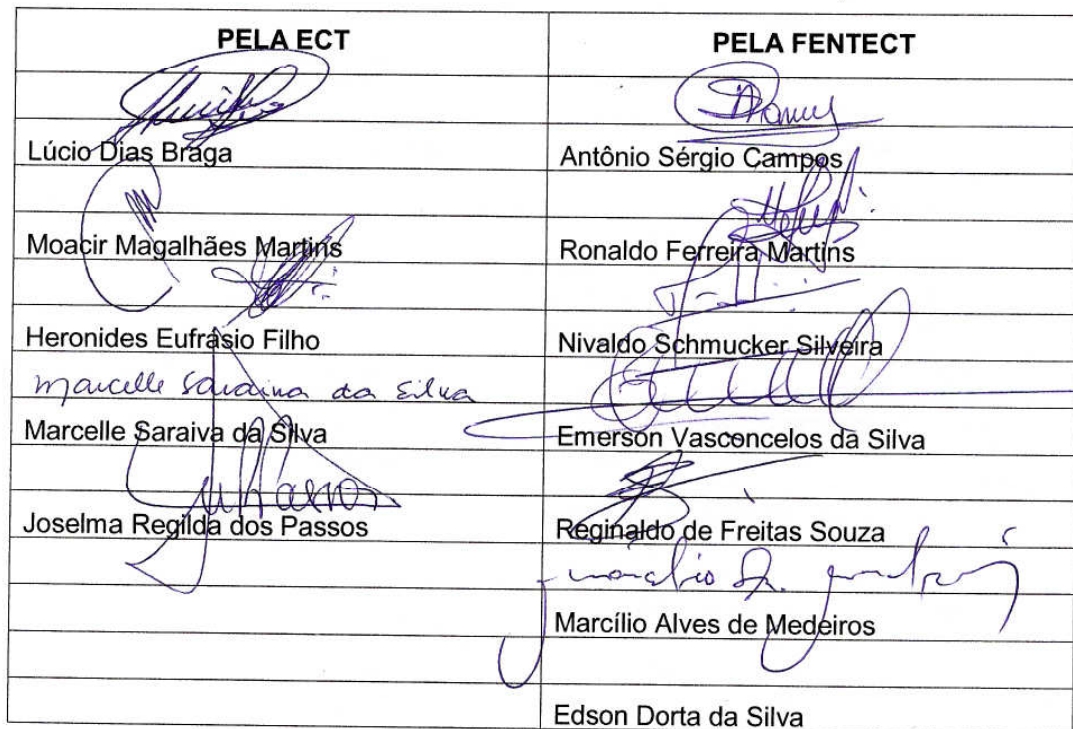 PELA ECT
PELA FENTECT
Lúcio Dias Braga
Antônio Sérgio Campos
Moacir Magalhães Martins
Ronaldo Ferreira Martins
Heronides Eufrásio Filho
Nivaldo Schmucker Silveira
Marcelle Saraiva da Silva
Marcelle Saraiva da Silva
Emerson Vasconcelos da Silva
Joselma Regilda dos Passos
Reginaldo de Freitas Souza
Marcílio Alves de Medeiros
Edson Dorta da Silva